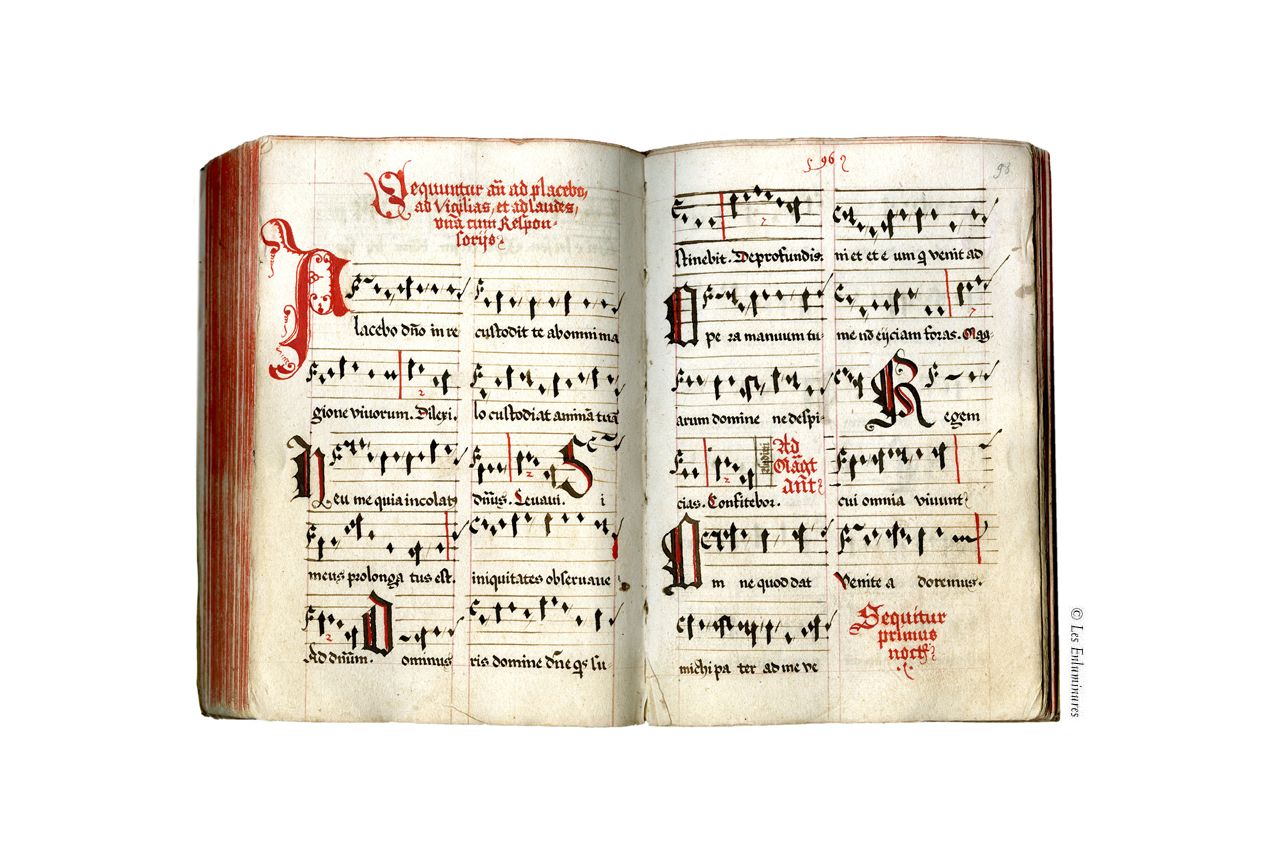 Sequuntur an̄ ad placebo,
ad Vigilias, et ad laudes,
vnā cum Respon-
sorijs
Placebo dn̄o in re
gione viuorum. Dilexi.
Heu me quia incolatꝰ
meus prolonga tus est.
Ad dn̄um. Dominus
custodit te ab omni ma
lo custodiat animā tuā
dn̄us. Leuaui. Si
iniquitates obseruaue
ris domine dn̄e qs su-
96
98
stinebit. De profundis.
Opera manuum tu-
arum domine ne despi-
cias. Confitebor.
Ad
Mag̃t
Ant
Omne quod dat
michi pa ter ad me ve
niet et e um q venit ad
me nō eijciam foras. Mag
Regem
cui omnia viuunt
Venite a doremus.
Sequitur
primus
noct
© Les Enluminures